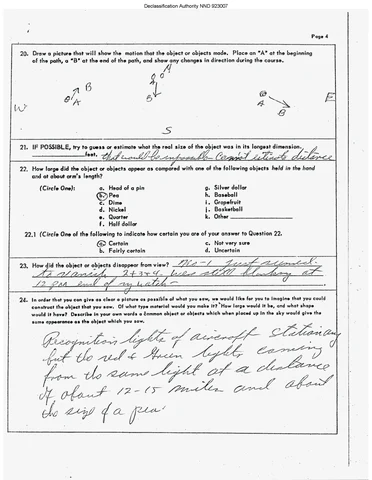 Declassification Authority NND 923007
Page 4
20. Draw a picture that will show the motion that the object or objects made. Place an "A" at the beginning
of the path, a "B" at the end of the path, and show any changes in direction during the course.
A
B
A
B
A
B
W
E
S
21. IF POSSIBLE, try to guess or estimate what the real size of the object was in its longest dimension.
feet. that would be impossible cannot estimate distance
22. How large did the object or objects appear as compared with one of the following objects held in the hand
and at about arm's length?
(Circle One): a. Head of a pin g. Silver dollar
b. Pea h. Baseball
c. Dime i. Grapefruit
d. Nickel j. Basketball
e. Quarter k. Other
f. Half dollar
22.1 (Circle One of the following to indicate how certain you are of your answer to Question 22.
a. Certain c. Not very sure
b. Fairly certain d. Uncertain
23. How did the object or objects disappear from view? No-1 just seemed
to vanish 2+3+4 was still blinking at
12 end of my watch-
24. In order that you can give as clear a picture as possible of what you saw, we would like for you to imagine that you could
construct the object that you saw. Of what type material would you make it? How large would it be, and what shape
would it have? Describe in your own words a common object or objects which when placed up in the sky would give the
same appearance as the object which you saw.
Recognition lights of aircraft stationary
but the red & Green lights coming
from the same light at a distance
of about 12-15 miles and about
the size of a pea